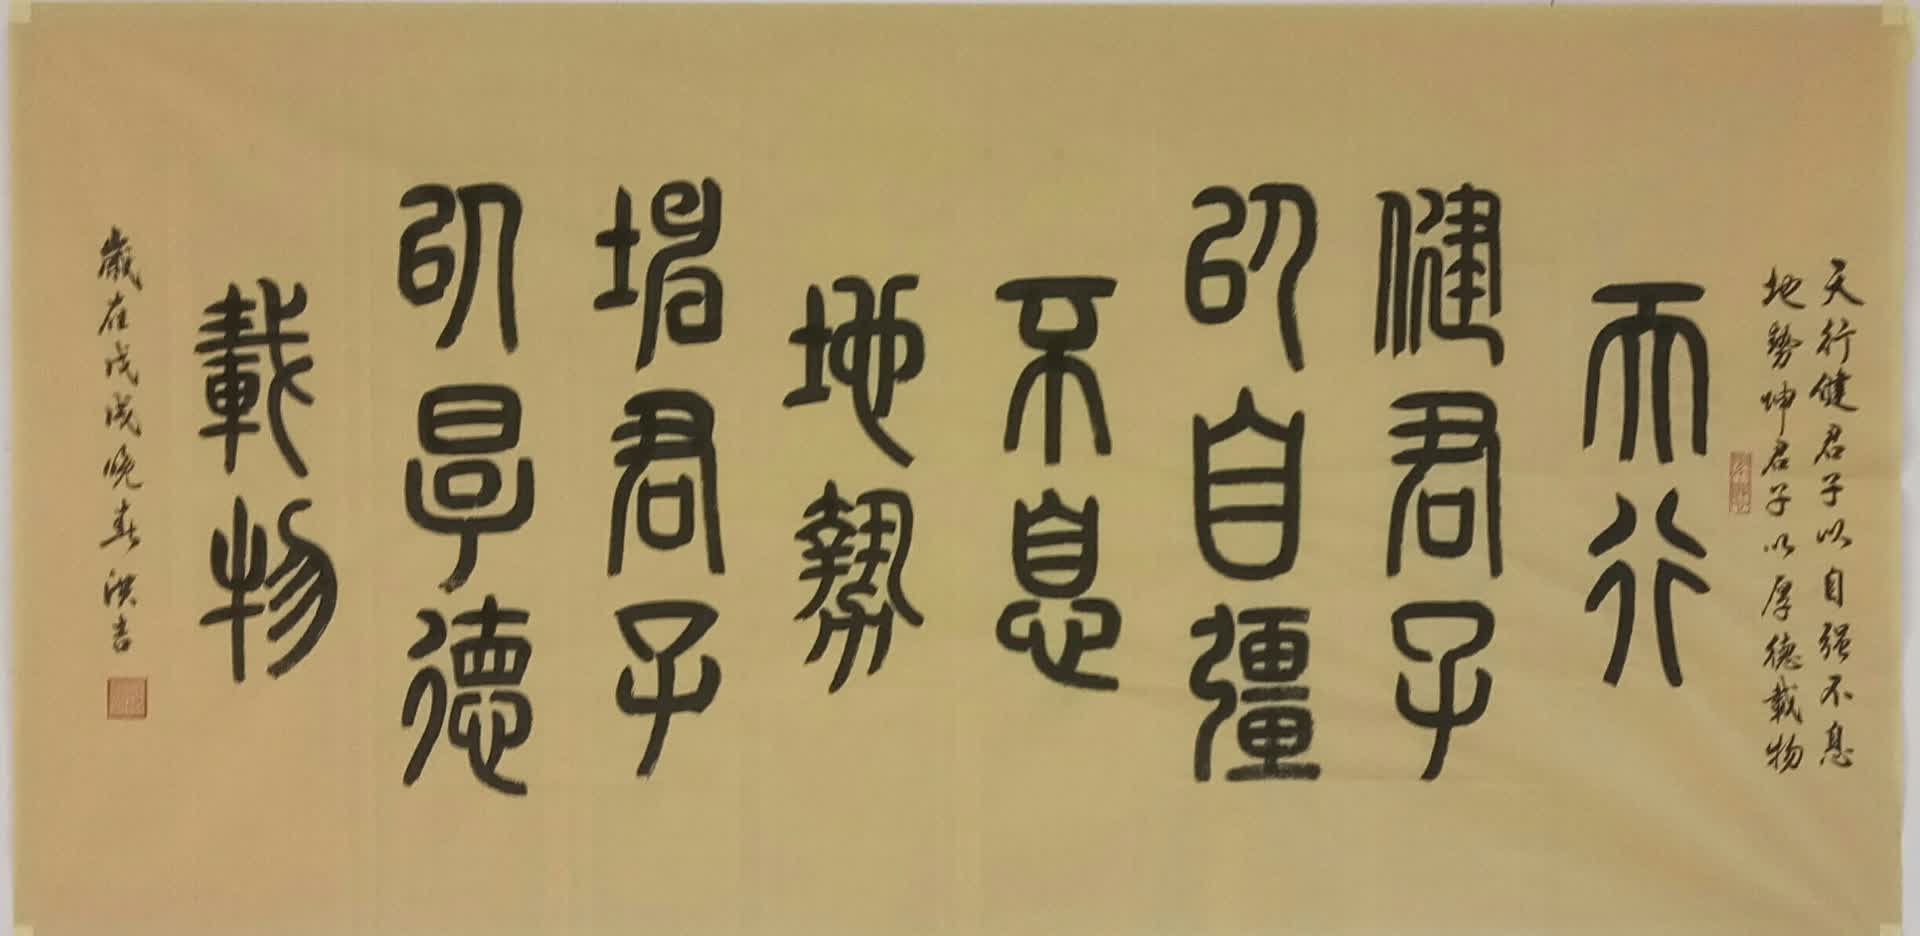 天行健君子以自强不息
地势坤君子以厚德载物
天行
健君子
㠯自彊
不息
地埶
坤君子
㠯厚德
載物
歲在戊戌晚春 洪吉